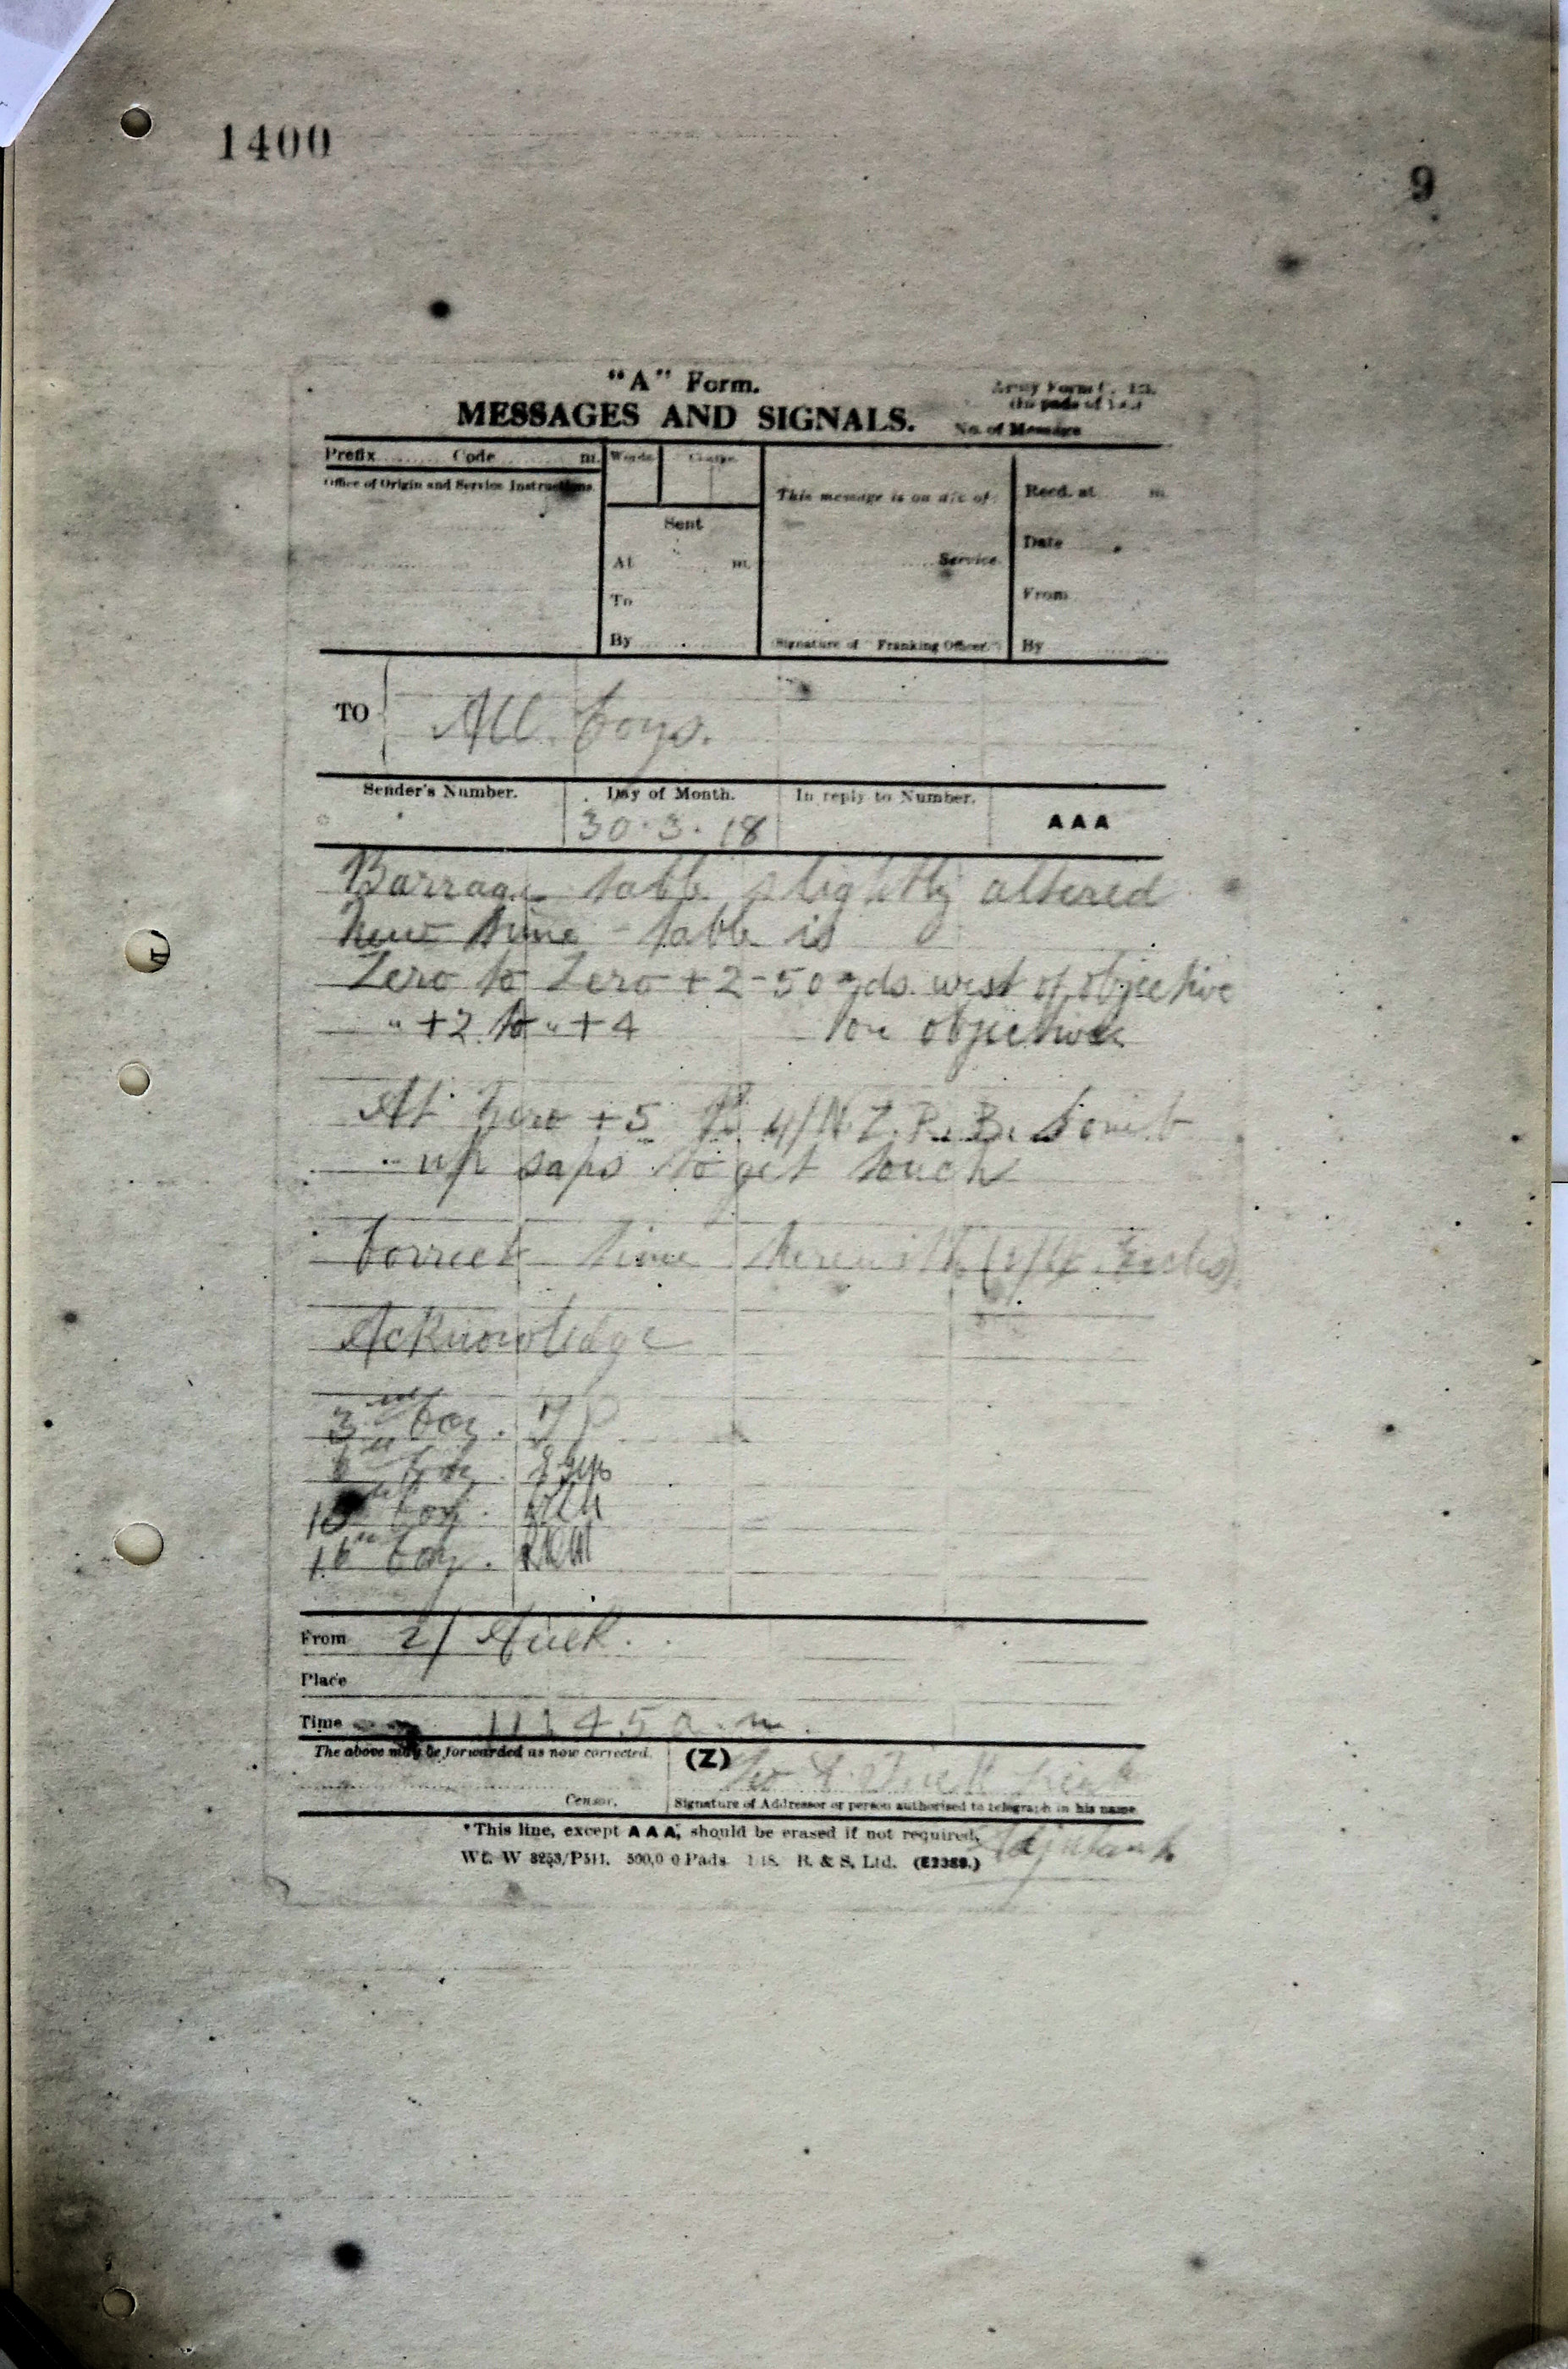 1400
9
"A" Form.
MESSAGES AND SIGNALS.
Army Form C.
No. of Message
Prefix Code m.
Words Charge
Office of Origin and Service Instructions.
Sent
At m.
To
By
This message is on a/c of
Service.
Signature of "Franking Officer."
Recd. at m
Date
From
By
TO All Coys.
Sender's Number. Day of Month. In reply to Number. AAA
30.3.18
Barrage table slightly altered
New time-table is
Zero to Zero +2 - 50 yds. west of objective
" +2 to " +4 on objective
At Zero +5 4/N.Z.R.B. bomb
up saps to get touch
Correct time herewith
Acknowledge
3rd Coy.
6th Coy.
15th Coy.
16th Coy.
From 2/Auck.
Place
Time 11.45 a.m.
The above may be forwarded as now corrected. (Z)
Censor. Signature of Addressor or person authorised to telegraph in his name
*This line, except AAA, should be erased if not required.
Adjutant
Wt. W 3253/P511. 500,000 Pads R. & S. Ltd. (E2389.)